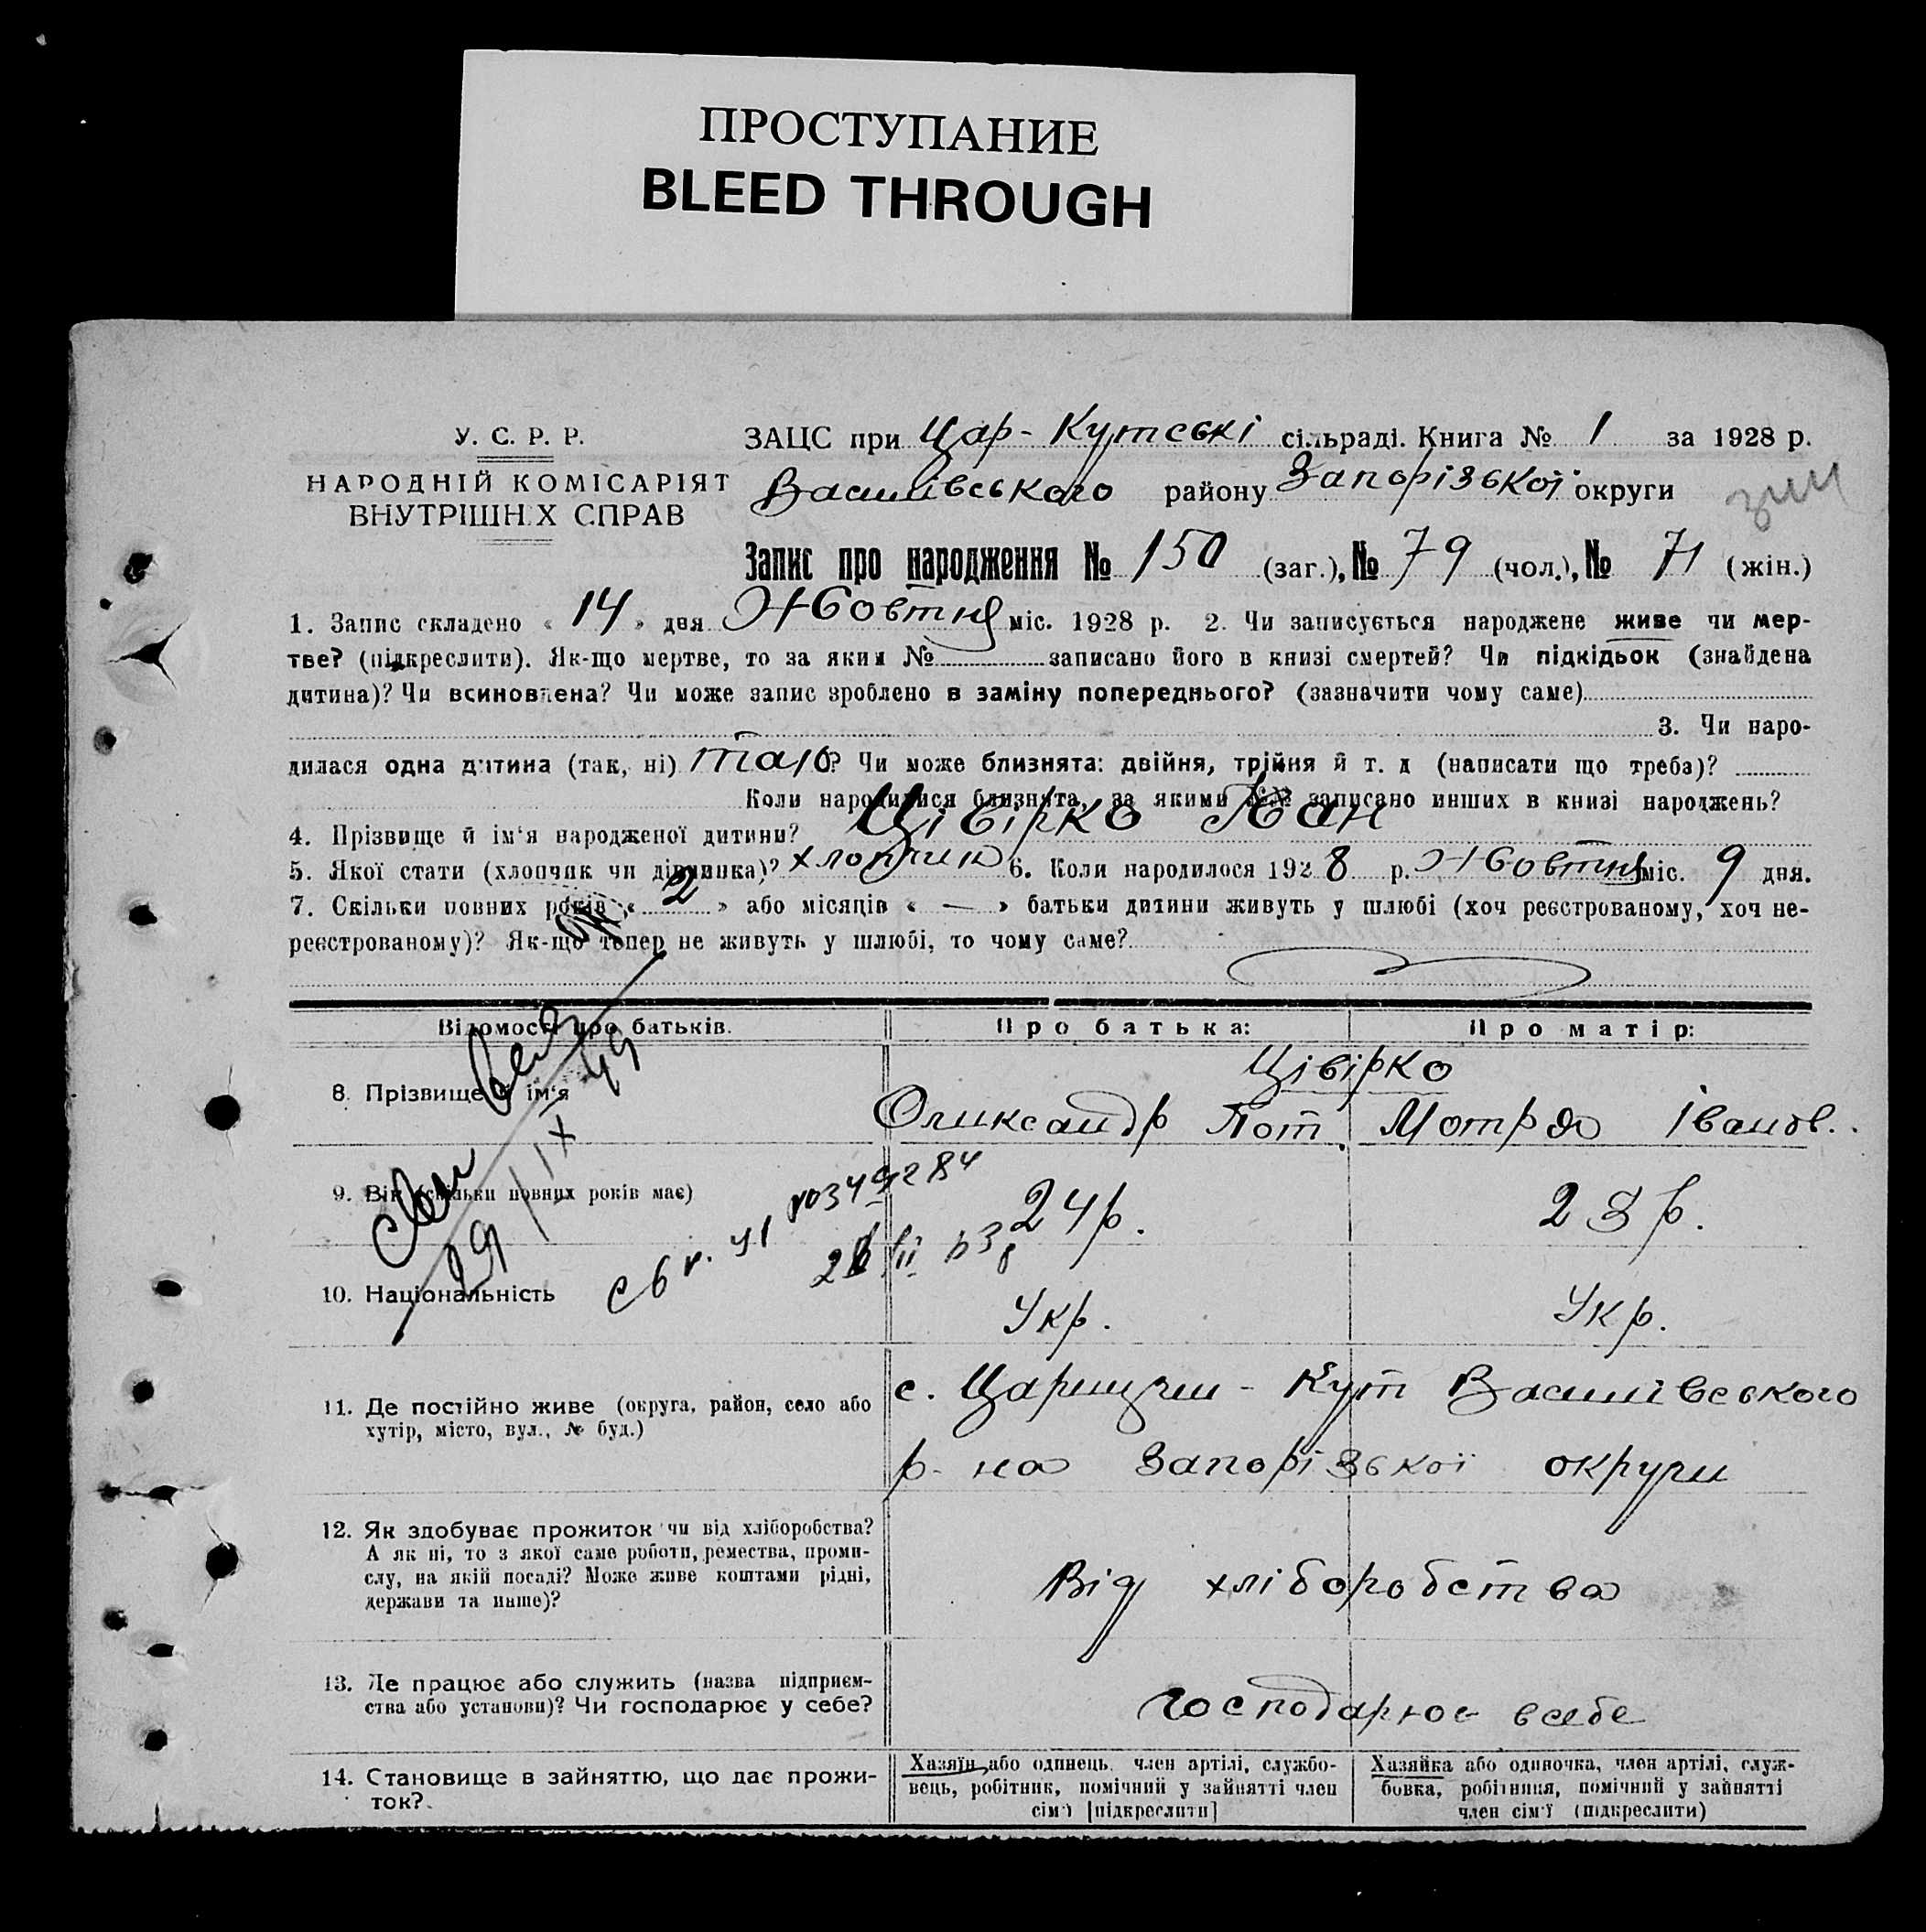 ПРОСТУПАНИЕ
BLEED THROUGH
У. С. Р. Р.
НАРОДНІЙ КОМІСАРІЯТ
ВНУТРІШНІХ СПРАВ
ЗАЦС при Цар-Кутські сільраді. Книга № 1 за 1928 р.
Василівського району Запорізької округи
Запис про народження № 150 (заг.), № 79 (чол.), № 71 (жін.)
1. Запис складено « 14 » дня Жовтня міс. 1928 р. 2. Чи записується народжене живе чи мер-
тве? (підкреслити). Як-що мертве, то за яким № записано його в книзі смертей? Чи підкідьок (знайдена
дитина)? Чи всиновлена? Чи може запис зроблено в заміну попереднього? (зазначити чому саме)
3. Чи наро-
дилася одна дитина (так, ні) так? Чи може близнята: двійня, трійня й т. д (написати що треба)?
Коли народилися близнята, за якими №№ записано инших в книзі народжень?
4. Прізвище й ім'я народженої дитини? Цівірко
5. Якої стати (хлопчик чи дівчинка)? хлопчик 6. Коли народилося 1928 р. Жовтня міс. 9 дня.
7. Скільки повних років « 2 » або місяців « — » батьки дитини живуть у шлюбі (хоч реєстрованому, хоч не-
реєстрованому)? Як-що тепер не живуть у шлюбі, то чому саме?
Відомості про батьків.
Про батька:
Про матір:
8. Прізвище й ім'я
Цівірко
Олександр Пот. Мотря Іванов.
29/IX 49
9. Вік (скільки повних років має)
24 р.
28 р.
10. Національність
Укр.
Укр.
11. Де постійно живе (округа, район, село або
хутір, місто, вул., № буд.)
с. Царицин-Кут Василівського
р-на Запорізької округи
12. Як здобуває прожиток чи від хліборобства?
А як ні, то з якої саме роботи, ремества, проми-
слу, на якій посаді? Може живе коштами рідні,
держави та инше)?
Від хліборобства
13. Де працює або служить (назва підприєм-
ства або установи)? Чи господарює у себе?
господарює в себе
14. Становище в зайняттю, що дає прожи-
ток?
Хазяїн або одинець, член артілі, службо-
вець, робітник, помічний у зайнятті член
сім'ї [підкреслити]
Хазяйка або одиночка, член артілі, служ-
бовка, робітниця, помічний у зайнятті
член сім'ї (підкреслити)